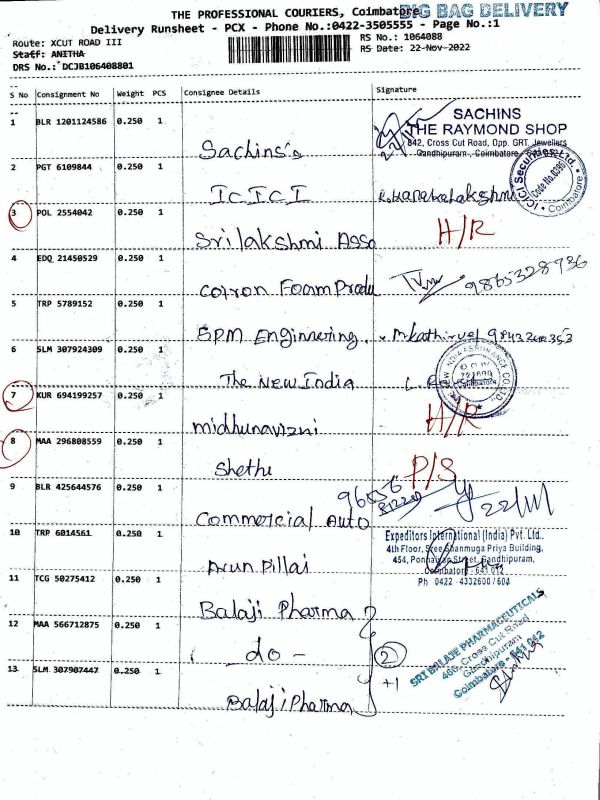 THE PROFESSIONAL COURIERS, Coimbatore BIG BAG DELIVERY
Delivery Runsheet - PCX - Phone No.:0422-3505555 - Page No.:1
Route: XCUT ROAD III RS No.: 1064088
Staff: ANITHA RS Date: 22-Nov-2022
DRS No.: DCJB106408801
S No Consignment No Weight PCS Consignee Details Signature
1 BLR 1201124586 0.250 1 Sachins's 22/11
SACHINS
THE RAYMOND SHOP
842, Cross Cut Road, Opp. GRT. Jewellers
Gandhipuram, Coimbatore
2 PGT 6109844 0.250 1 ICICI R.Kanakalakshmi
ICICI Securities Ltd
Coimbatore
3 POL 2554042 0.250 1 Srilakshmi Asso H/R
4 EDQ 21450529 0.250 1 Cotron Foam Produ 9865328736
5 TRP 5789152 0.250 1 SPM Enginnering. M.kathirvel
6 SLM 307924309 0.250 1 The New India
7 KUR 694199257 0.250 1 midhunavizni H/R
8 MAA 296808559 0.250 1 Shethu P/S
9 BLR 425644576 0.250 1 Commercial Auto 22/11
10 TRP 6014561 0.250 1 Arun Pillai
Expeditors International (India) Pvt. Ltd..
4th Floor, Sree Shanmuga Priya Building,
454, Ponnaiyan Street, Gandhipuram,
Coimbatore - 641 012
Ph 0422 - 4332600 / 604
11 TCG 50275412 0.250 1 Balaji Pharma
12 MAA 566712875 0.250 1 - do - 2
13 SLM 307907447 0.250 1 Balaji Pharma +1
SRI BALAJE PHARMACEUTICALS
466, Cross Cut Road
Gandhipuram
Coimbatore - 641 012